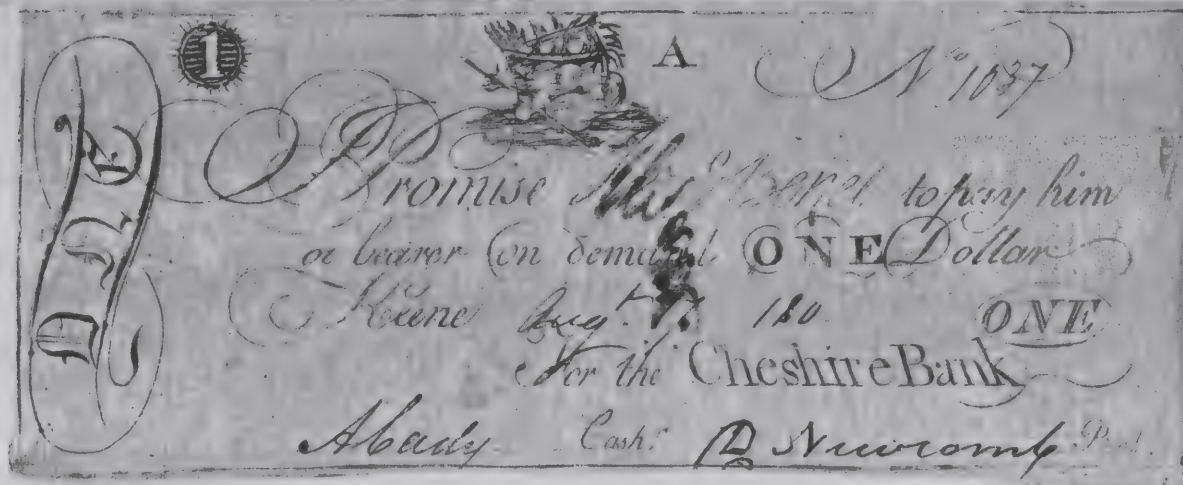 1 A No. 1037
I Promise to pay him
or bearer on demand ONE Dollar
Keene Augt. 180 ONE
For the Cheshire Bank
Cashr. D Newcomb Prest.
ONE